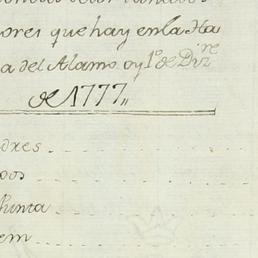 ores que hay en la Ha
a del Alamo oy 1º de Dizre
de 1777,,
dres
pos
Junta
em